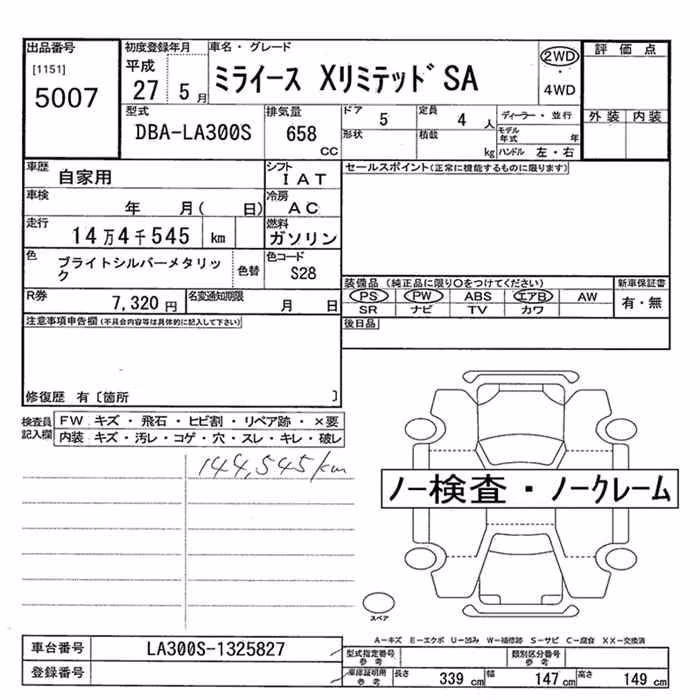 出品番号
[1151]
5007
初度登録年月
平成
27 5月
車名・グレード
ミライース XリミテッドSA
2WD
・
4WD
評価点
外装 内装
型式
DBA-LA300S
排気量
658
CC
ドア 5
定員 4 人
形状
積載 kg
ディーラー・並行
モデル年式 年
ハンドル 左・右
車歴
自家用
シフト
IAT
セールスポイント(正常に機能するものに限ります)
車検
年 月( 日)
冷房
AC
走行
14万4千545 km
燃料
ガソリン
色
ブライトシルバーメタリック
色替
色コード
S28
装備品 (純正品に限り○をつけてください)
PS PW ABS エアB AW
SR ナビ TV カワ
新車保証書
有・無
R券
7,320 円
名変通知期限
月 日
後日品
注意事項申告欄(不具合内容等は具体的に記入して下さい)
修復歴 有〔箇所 〕
検査員記入欄
FW キズ・飛石・ヒビ割・リペア跡・×要
内装 キズ・汚レ・コゲ・穴・スレ・キレ・破レ
144,545km
ノー検査・ノークレーム
スペア
A-キズ E-エクボ U-凹み W-補修跡 S-サビ C-腐食 XX-交換済
車台番号
LA300S-1325827
登録番号
型式指定番号
参考
類別区分番号
参考
車庫証明用
参考
長さ 339 cm
幅 147 cm
高さ 149 cm